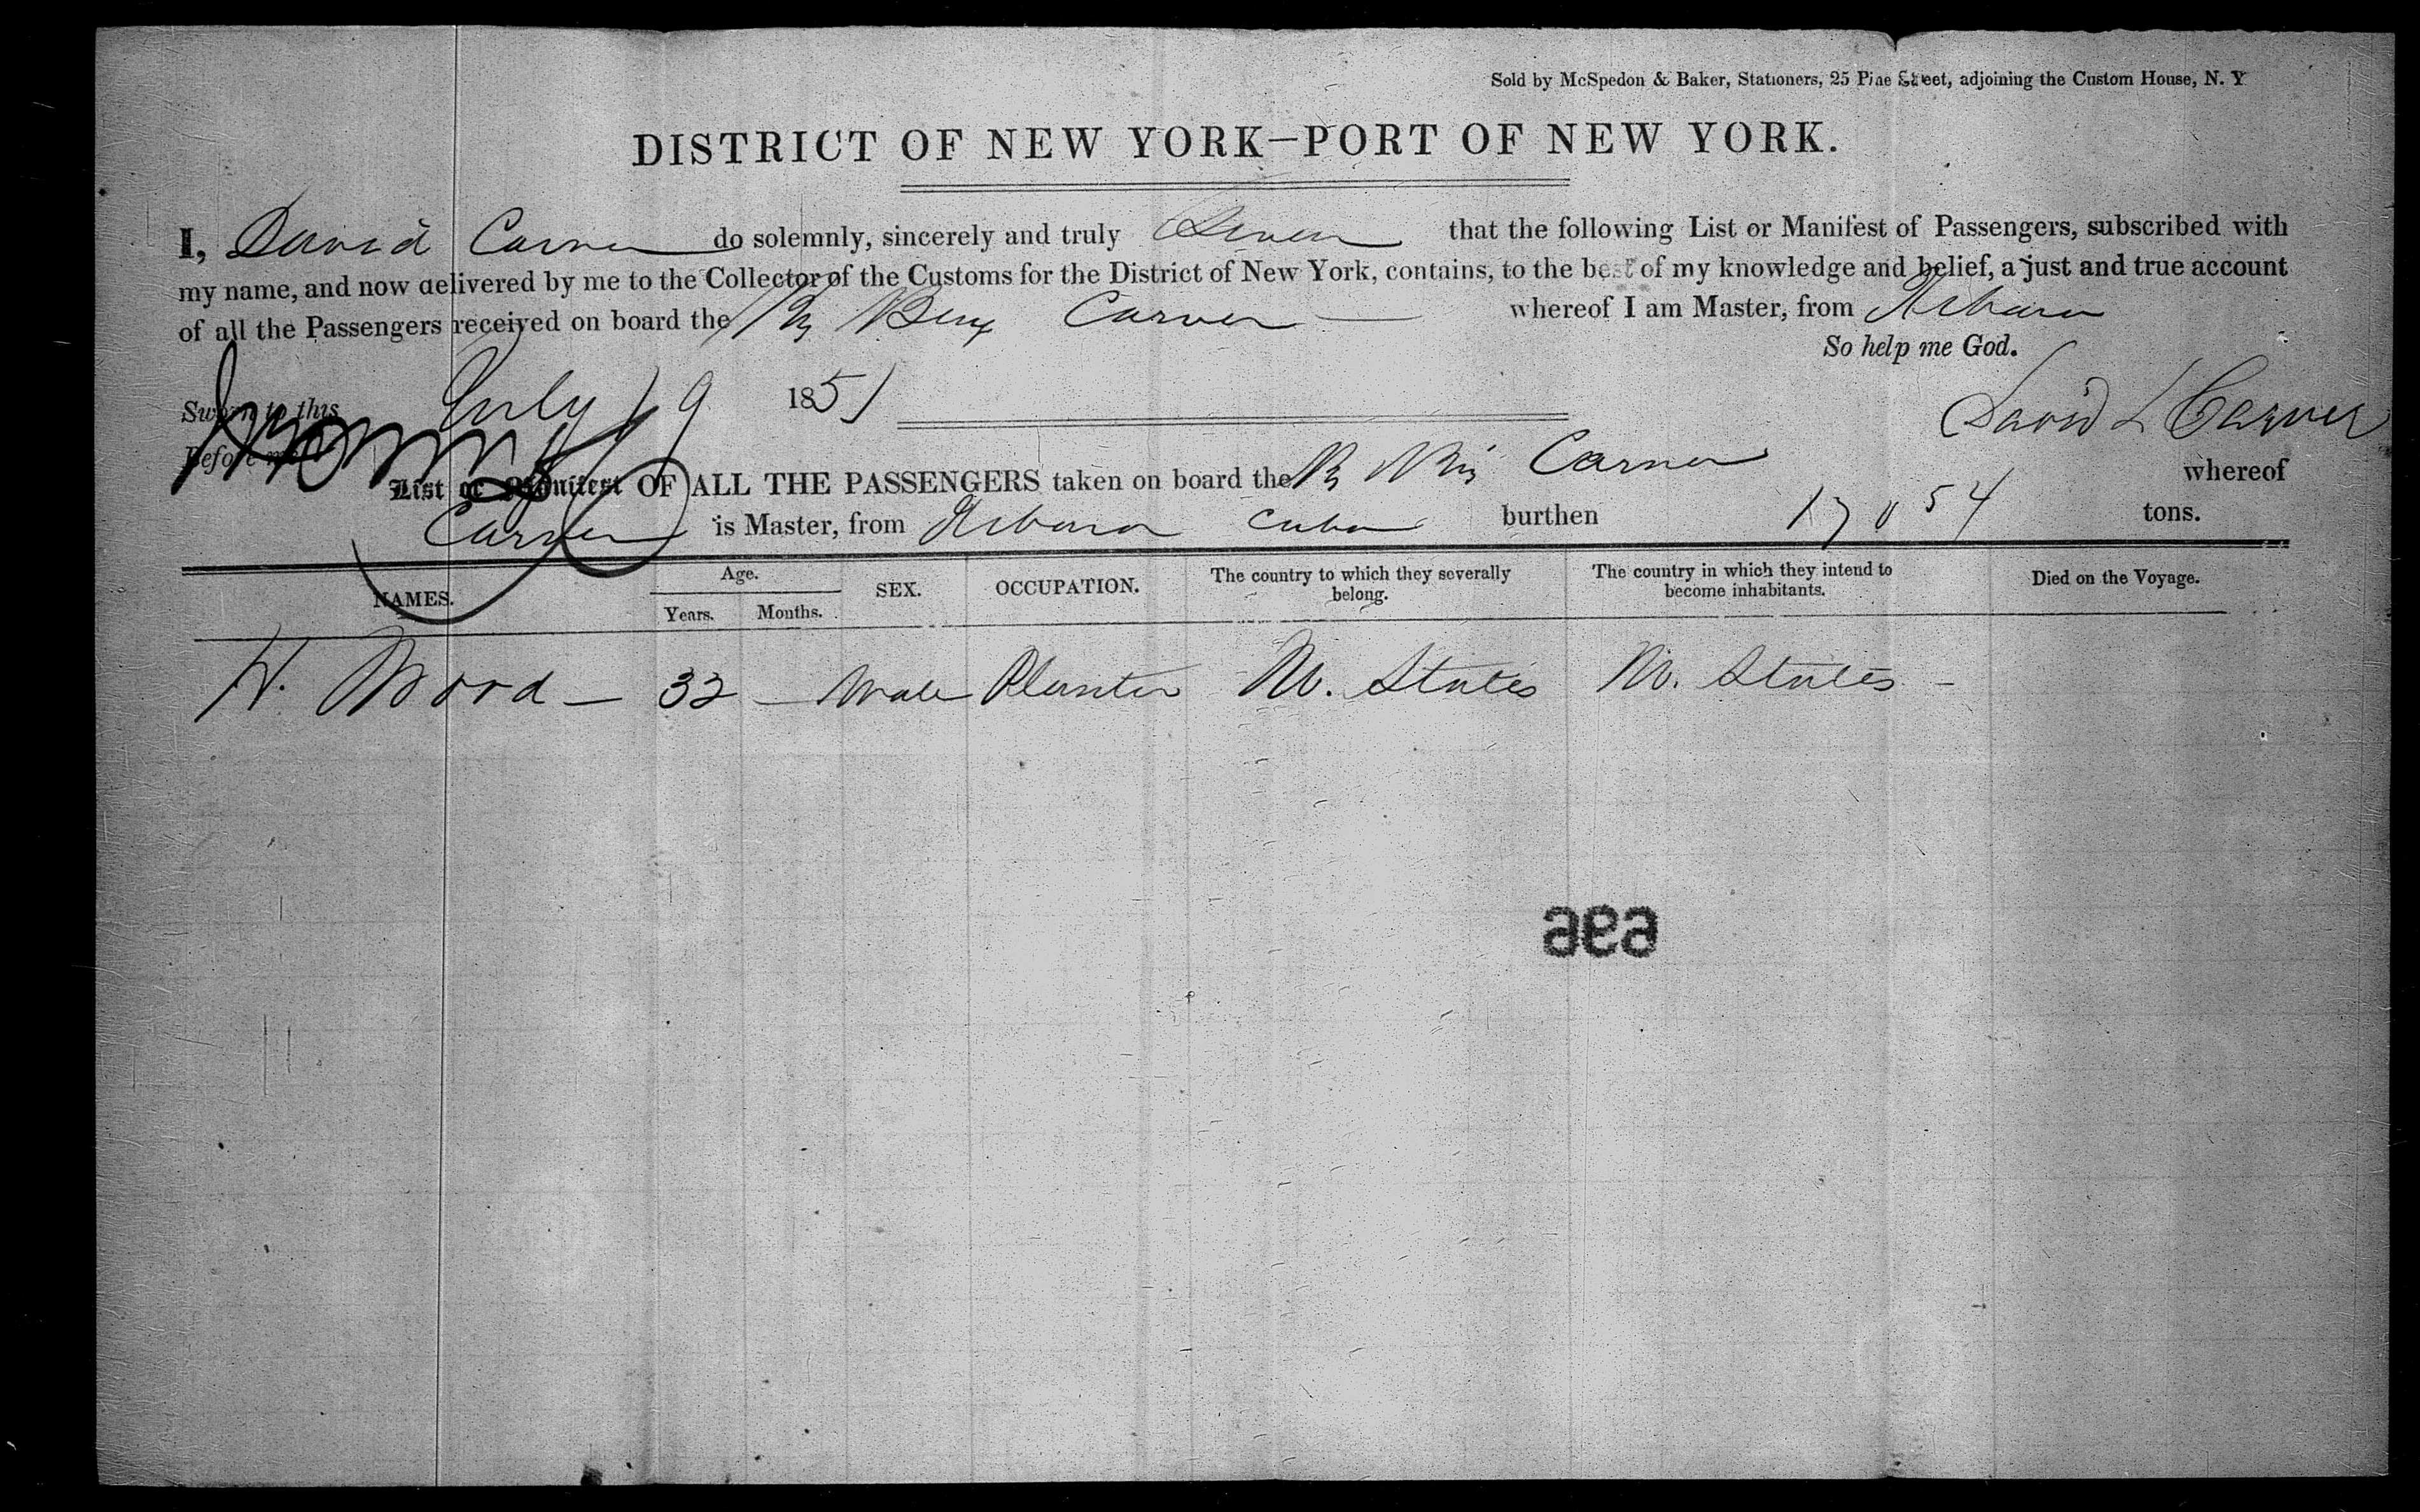 Sold by McSpedon & Baker, Stationers, 25 Pine Street, adjoining the Custom House, N. Y
DISTRICT OF NEW YORK—PORT OF NEW YORK.
I, David Carver do solemnly, sincerely and truly Swear that the following List or Manifest of Passengers, subscribed with
my name, and now delivered by me to the Collector of the Customs for the District of New York, contains, to the best of my knowledge and belief, a just and true account
of all the Passengers received on board the Carver whereof I am Master, from
So help me God.
Sworn to this July 19 1851
David L Carver
Before me
List or Manifest OF ALL THE PASSENGERS taken on board the Carver whereof
Carver is Master, from Cuba burthen 170 54 tons.
NAMES. Age. Years. Months. SEX. OCCUPATION. The country to which they severally belong. The country in which they intend to become inhabitants. Died on the Voyage.
H. Wood — 32 — Male Planter U. States U. States -
696